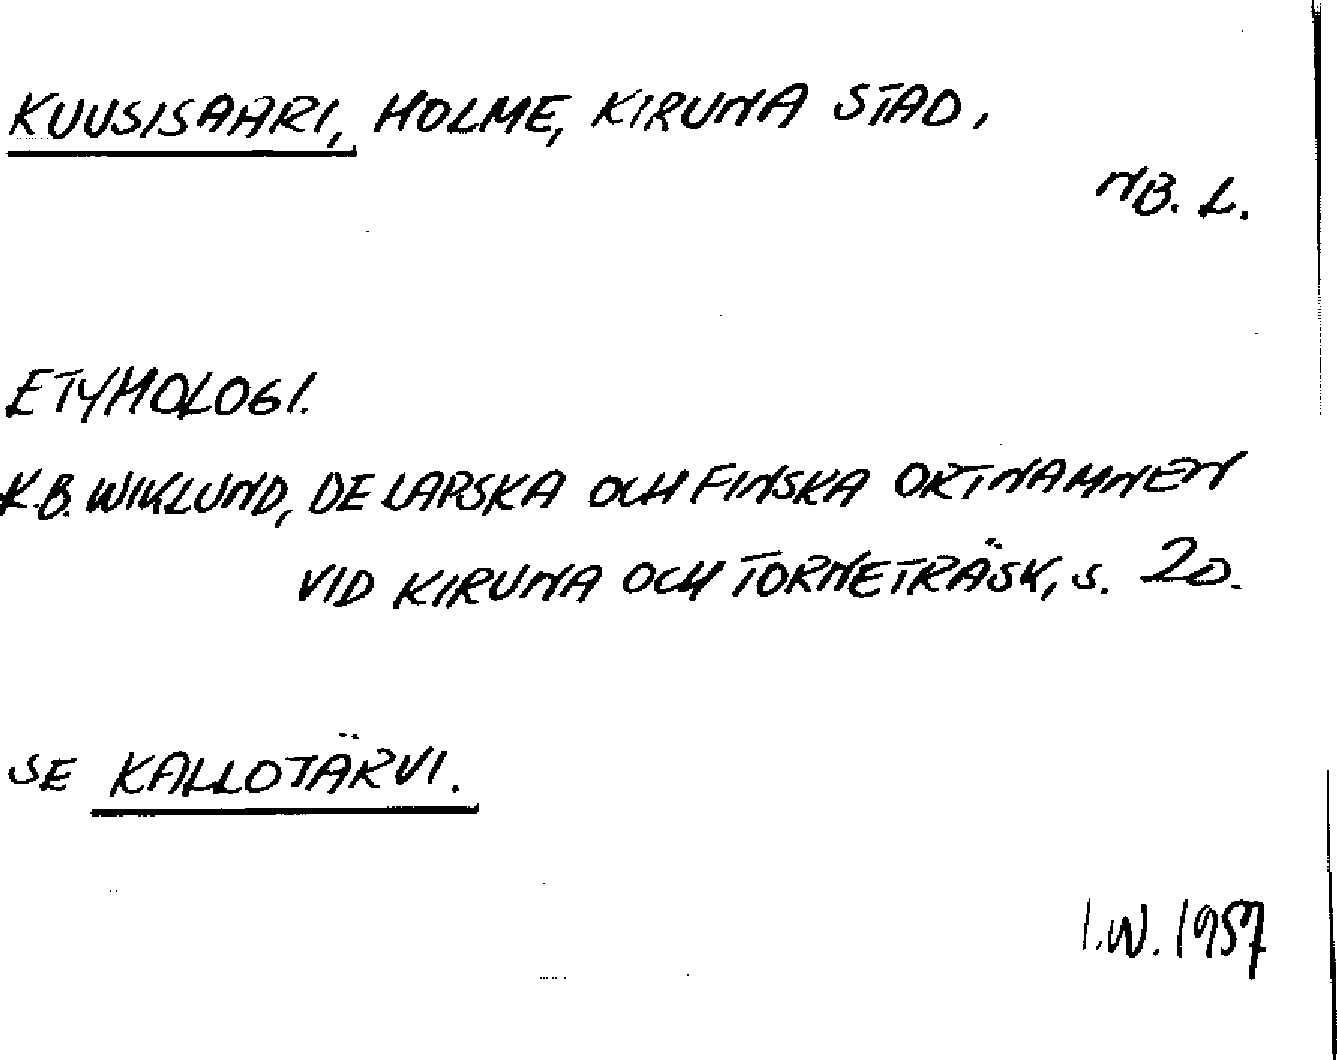 KUUSISAARI, HOLME, KIRUNA STAD,
NB. L.
ETYMOLOGI.
K.B. WIKLUND, DE LAPSKA OCH FINSKA ORTNAMNEN
VID KIRUNA OCH TORNETRÄSK, s. 20.
SE KALLOJÄRVI.
I.W. 1957